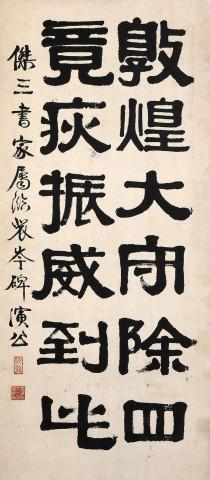 敦煌大守除四
竟疢振威到此
傑三書家屬臨裴岑碑演公